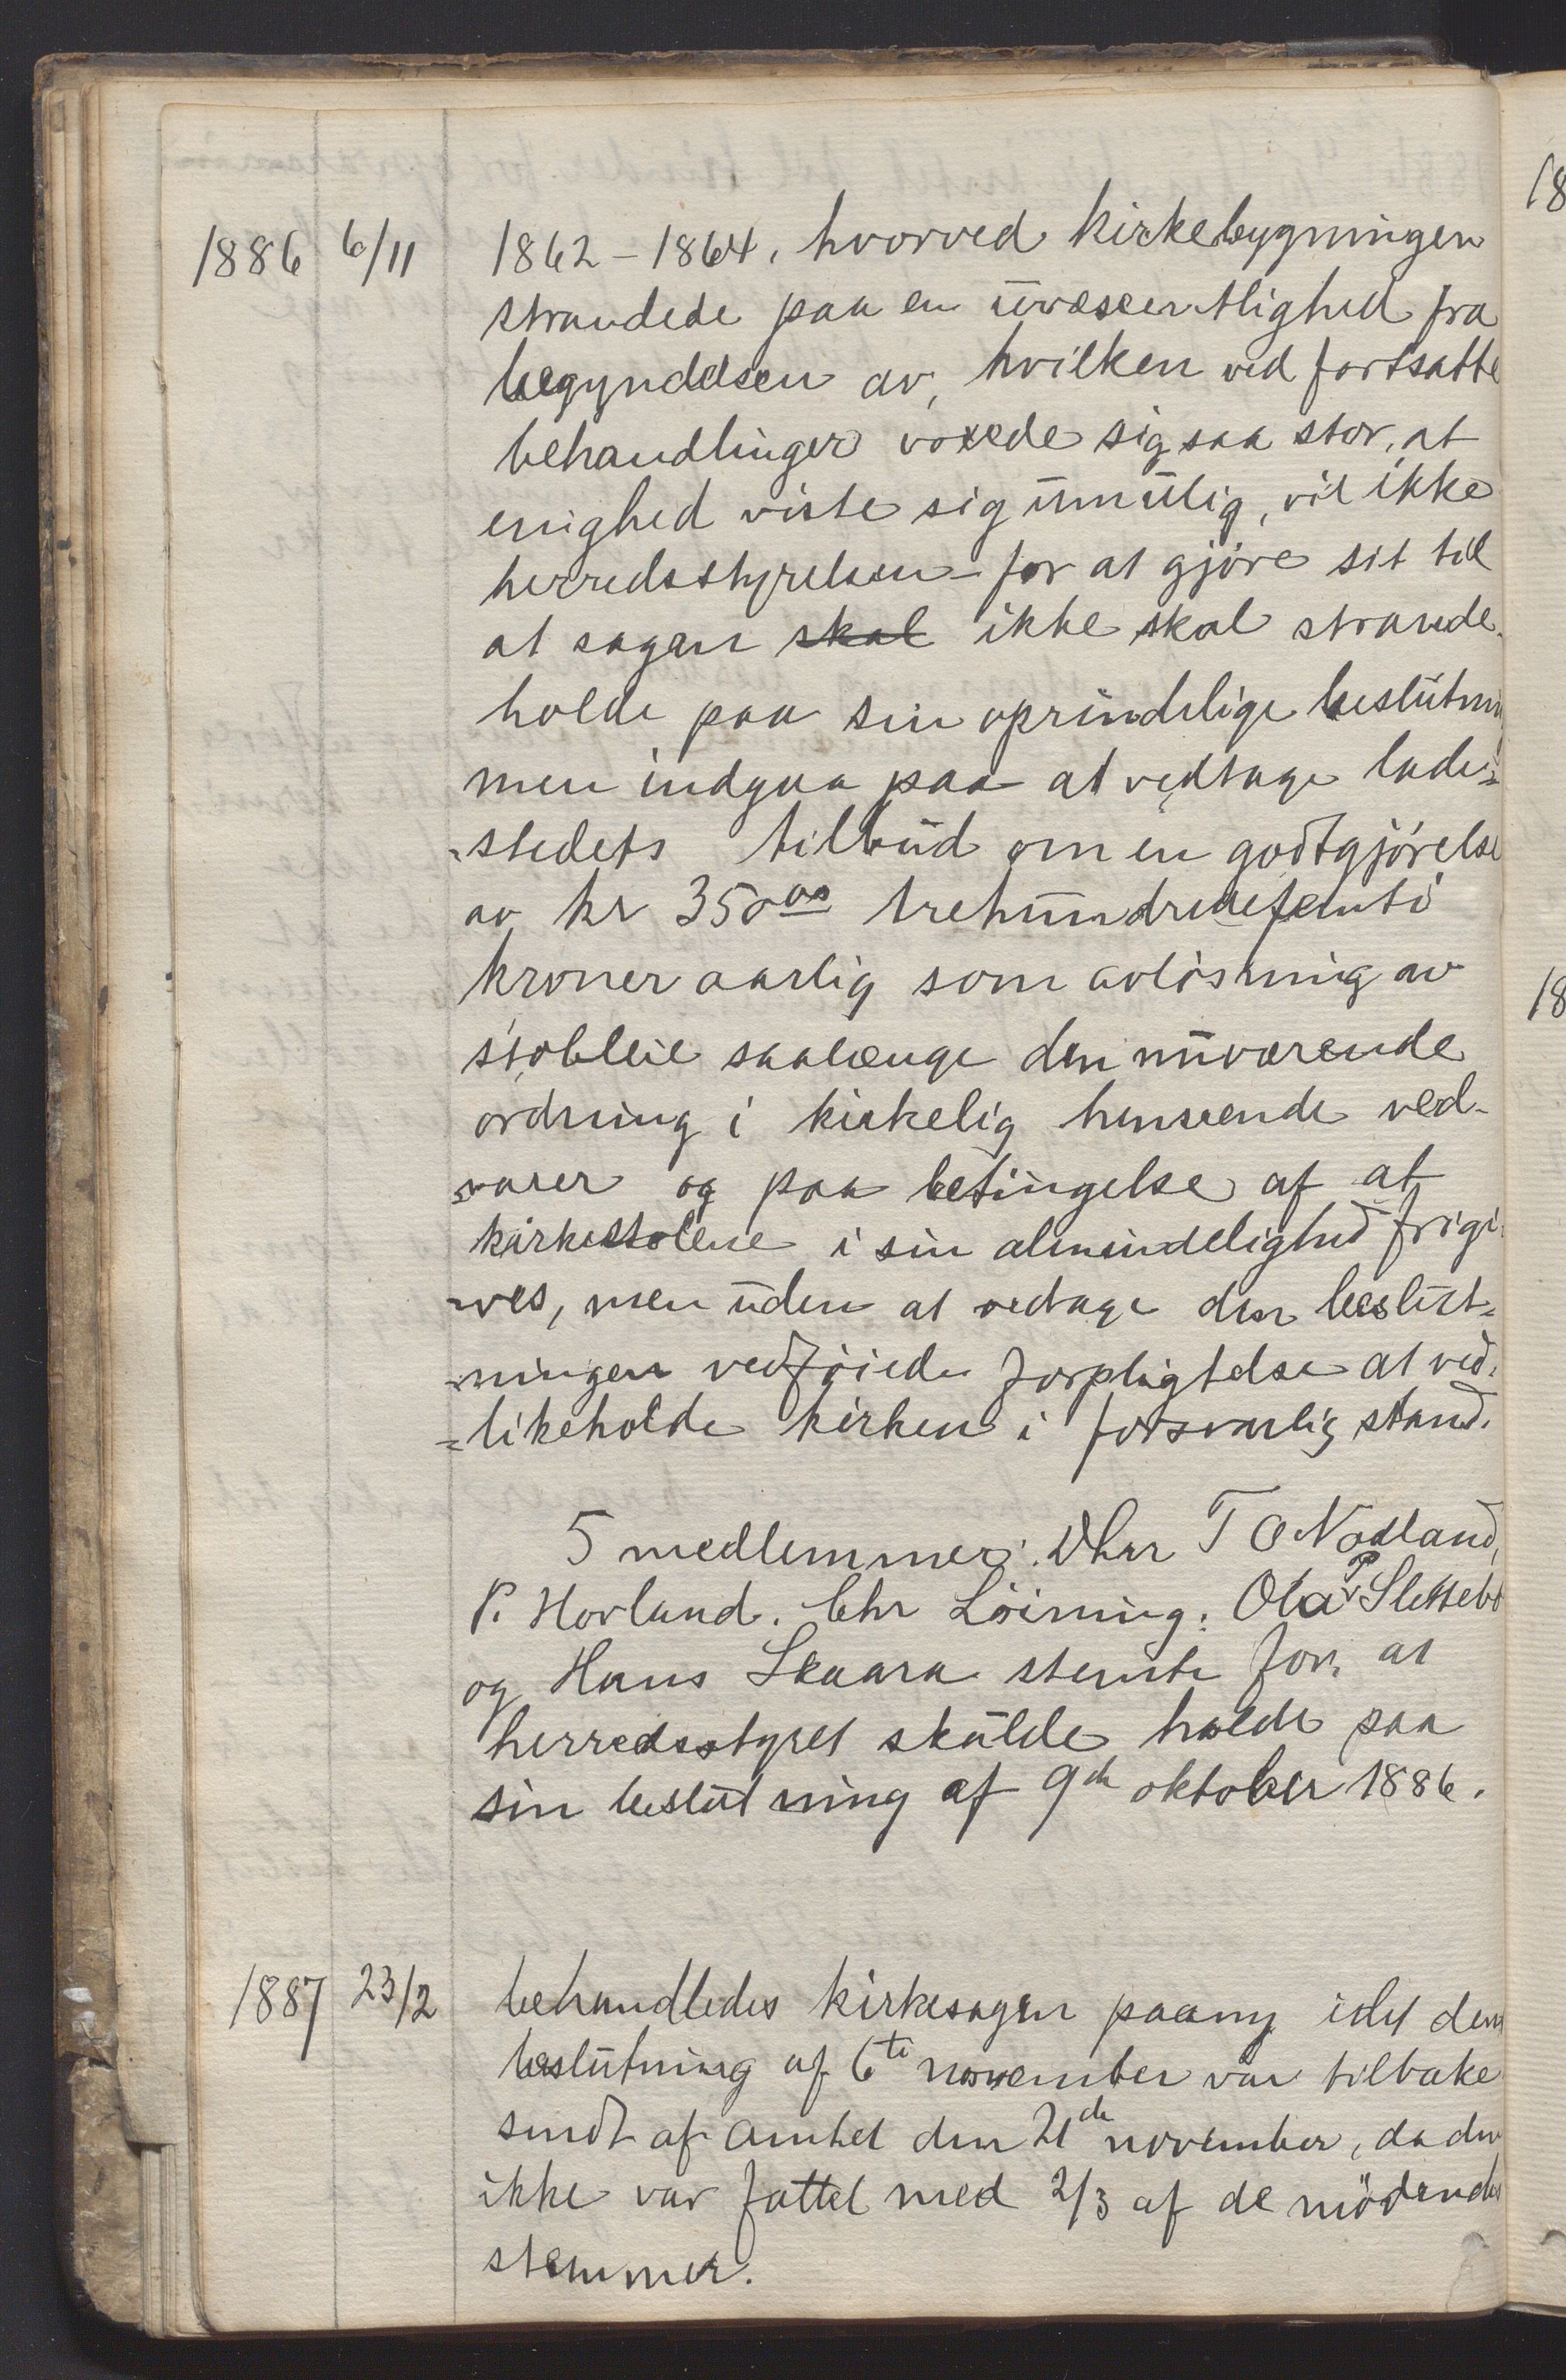 1886 6/11 1862-1864, hvorved kirkebygningen
strandede paa en uvæsentlighed fra
begyndelsen av, hvilken ved fortsatte
behandlinger voxede sig saa stor, at
enighed viste sig umulig, vil ikke
herredsstyrelsen - for at gjöre sit til
at sagen skal ikke skal strande.
holde paa sin oprindelige beslutning
men indgaa paa at vedtage lade=
stedets tilbud om en godtgjörelse
av kr 350 00 trehundredefemti
kroner aarlig som avlösning av
stolleie saalænge den nuværende
ordning i kirkelig henseende ved-
varer og paa betingelse af at
kirkestolene i sin almindelighed frigi-
ves, men uden at vedtage den beslut=
ningen vedföiede forpligtelse at ved-
=likeholde kirken i forsvarlig stand.
5 medlemmer: Dhrr T O Nodland,
P. Hovland. Chr Löining. Ola P Slettebö
og Hans Skaara stemte for, at
herredsstyret skulde holde paa
sin beslutning af 9de oktober 1886.
1887 23/2 behandledes kirkesagen paany idet den
beslutning af 6te november var tilbake
sendt af amtet den 21de november, da den
ikke var fattet med 2/3 af de mödendes
stemmer.
18
18